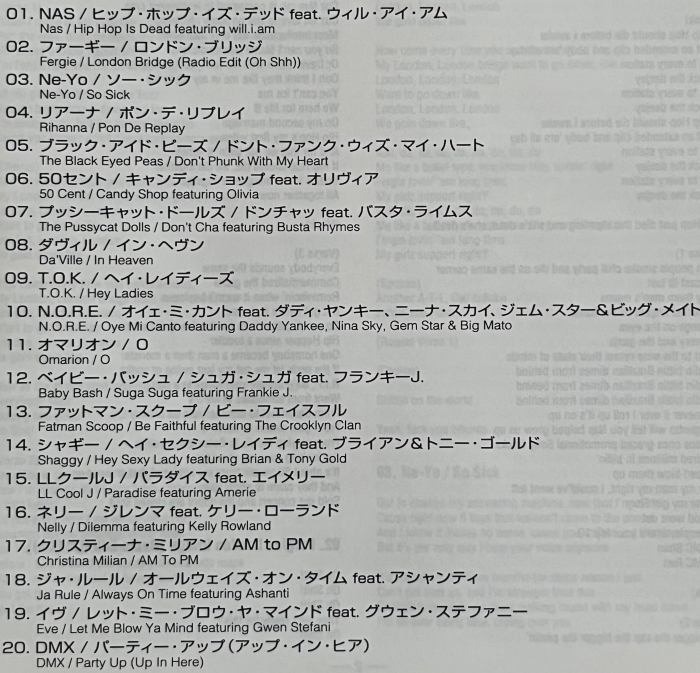 01. NAS / ヒップ・ホップ・イズ・デッド feat. ウィル・アイ・アム
Nas / Hip Hop Is Dead featuring will.i.am
02. ファーギー / ロンドン・ブリッジ
Fergie / London Bridge (Radio Edit (Oh Shh))
03. Ne-Yo / ソー・シック
Ne-Yo / So Sick
04. リアーナ / ポン・デ・リプレイ
Rihanna / Pon De Replay
05. ブラック・アイド・ピーズ / ドント・ファンク・ウィズ・マイ・ハート
The Black Eyed Peas / Don't Phunk With My Heart
06. 50セント / キャンディ・ショップ feat. オリヴィア
50 Cent / Candy Shop featuring Olivia
07. プッシーキャット・ドールズ / ドンチャッ feat. バスタ・ライムス
The Pussycat Dolls / Don't Cha featuring Busta Rhymes
08. ダヴィル / イン・ヘヴン
Da'Ville / In Heaven
09. T.O.K. / ヘイ・レイディーズ
T.O.K. / Hey Ladies
10. N.O.R.E. / オイェ・ミ・カント feat. ダディ・ヤンキー、ニーナ・スカイ、ジェム・スター&ビッグ・メイト
N.O.R.E. / Oye Mi Canto featuring Daddy Yankee, Nina Sky, Gem Star & Big Mato
11. オマリオン / O
Omarion / O
12. ベイビー・バッシュ / シュガ・シュガ feat. フランキーJ.
Baby Bash / Suga Suga featuring Frankie J.
13. ファットマン・スクープ / ビー・フェイスフル
Fatman Scoop / Be Faithful featuring The Crooklyn Clan
14. シャギー / ヘイ・セクシー・レイディ feat. ブライアン&トニー・ゴールド
Shaggy / Hey Sexy Lady featuring Brian & Tony Gold
15. LLクールJ / パラダイス feat. エイメリー
LL Cool J / Paradise featuring Amerie
16. ネリー / ジレンマ feat. ケリー・ローランド
Nelly / Dilemma featuring Kelly Rowland
17. クリスティーナ・ミリアン / AM to PM
Christina Milian / AM To PM
18. ジャ・ルール / オールウェイズ・オン・タイム feat. アシャンティ
Ja Rule / Always On Time featuring Ashanti
19. イヴ / レット・ミー・ブロウ・ヤ・マインド feat. グウェン・ステファニー
Eve / Let Me Blow Ya Mind featuring Gwen Stefani
20. DMX / パーティー・アップ(アップ・イン・ヒア)
DMX / Party Up (Up In Here)